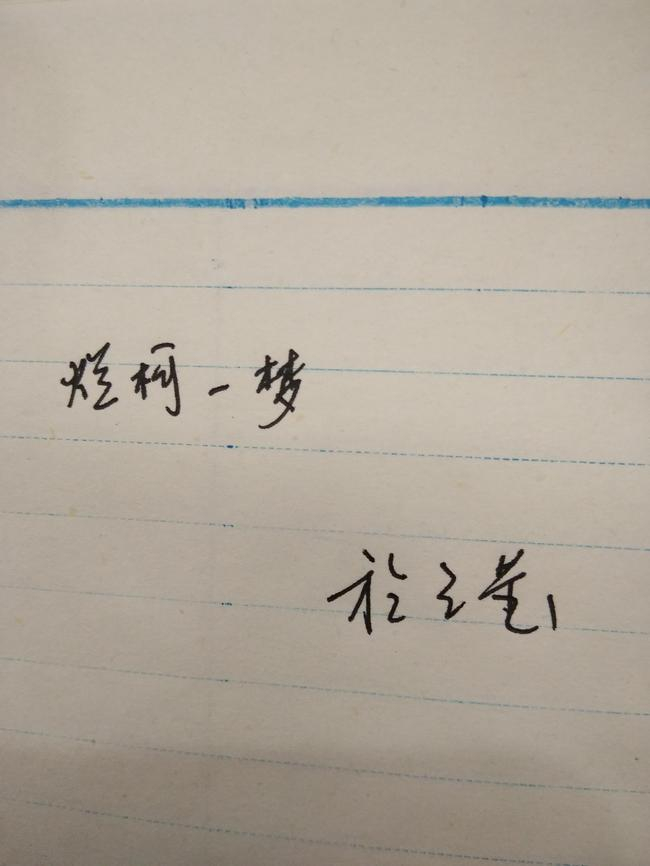 烂柯一梦
於之莹